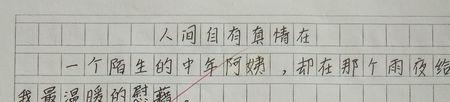 人间自有真情在
一个陌生的中年阿姨,却在那个雨夜给
我最温暖的慰藉。